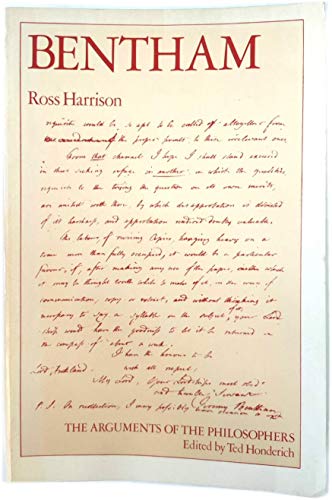 BENTHAM
Ross Harrison
requisite would be, so apt to be called of altogether from
the proper pounds to these irrelevant ones.
From that channel I hope I shall stand excused
in thus seeking refuge in another in which the qualities
requisite to the trying the question on its own merits,
are united with those, by which disapprobation is divested
of its harshness, and approbation rendered doubly valuable.
The labour of revising Copies hanging heavy on a
some more than fully occupied, it would be a particular
favour, if, after making any use of the paper, another which
it may be thought worth while to make of it, in the way of
communication, copy or extract, and without thinking it
necessary to say a syllable on the subject, your Lord
ship would have the goodness to let it be returned in
the compass of about a week.
I have the honour to be
Lord, with all respect,
My Lord, Your Lordship's most obed
and humble Servant
P.S. On recollection, I may possibly Jeremy Bentham
THE ARGUMENTS OF THE PHILOSOPHERS
Edited by Ted Honderich